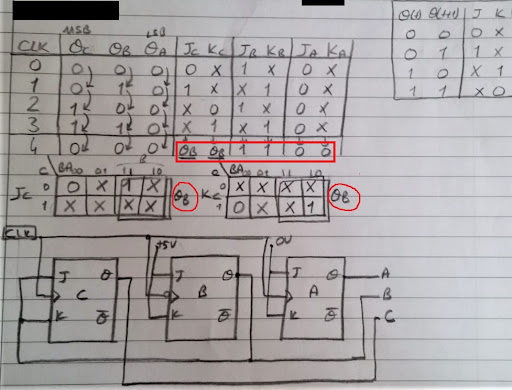 Q(t) Q(t+1) J K
0 0 0 X
0 1 1 X
1 0 X 1
1 1 X 0
MSB LSB
CLK QC QB QA JC KC JB KB JA KA
0 0 0 0 0 X 1 X 0 X
1 0 1 0 1 X X 1 0 X
2 1 0 0 X 0 1 X 0 X
3 1 1 0 X 1 X 1 0 X
4 0 0 0 QB QB 1 1 0 0
B
C BA 00 01 11 10
JC 0 0 X 1 X QB
1 X X X X
C BA 00 01 11 10
KC 0 X X X X QB
1 0 X X 1
CLK +5V 0V
J Q J Q J Q A
C B A B
K Q̅ K Q̅ K Q̅ C